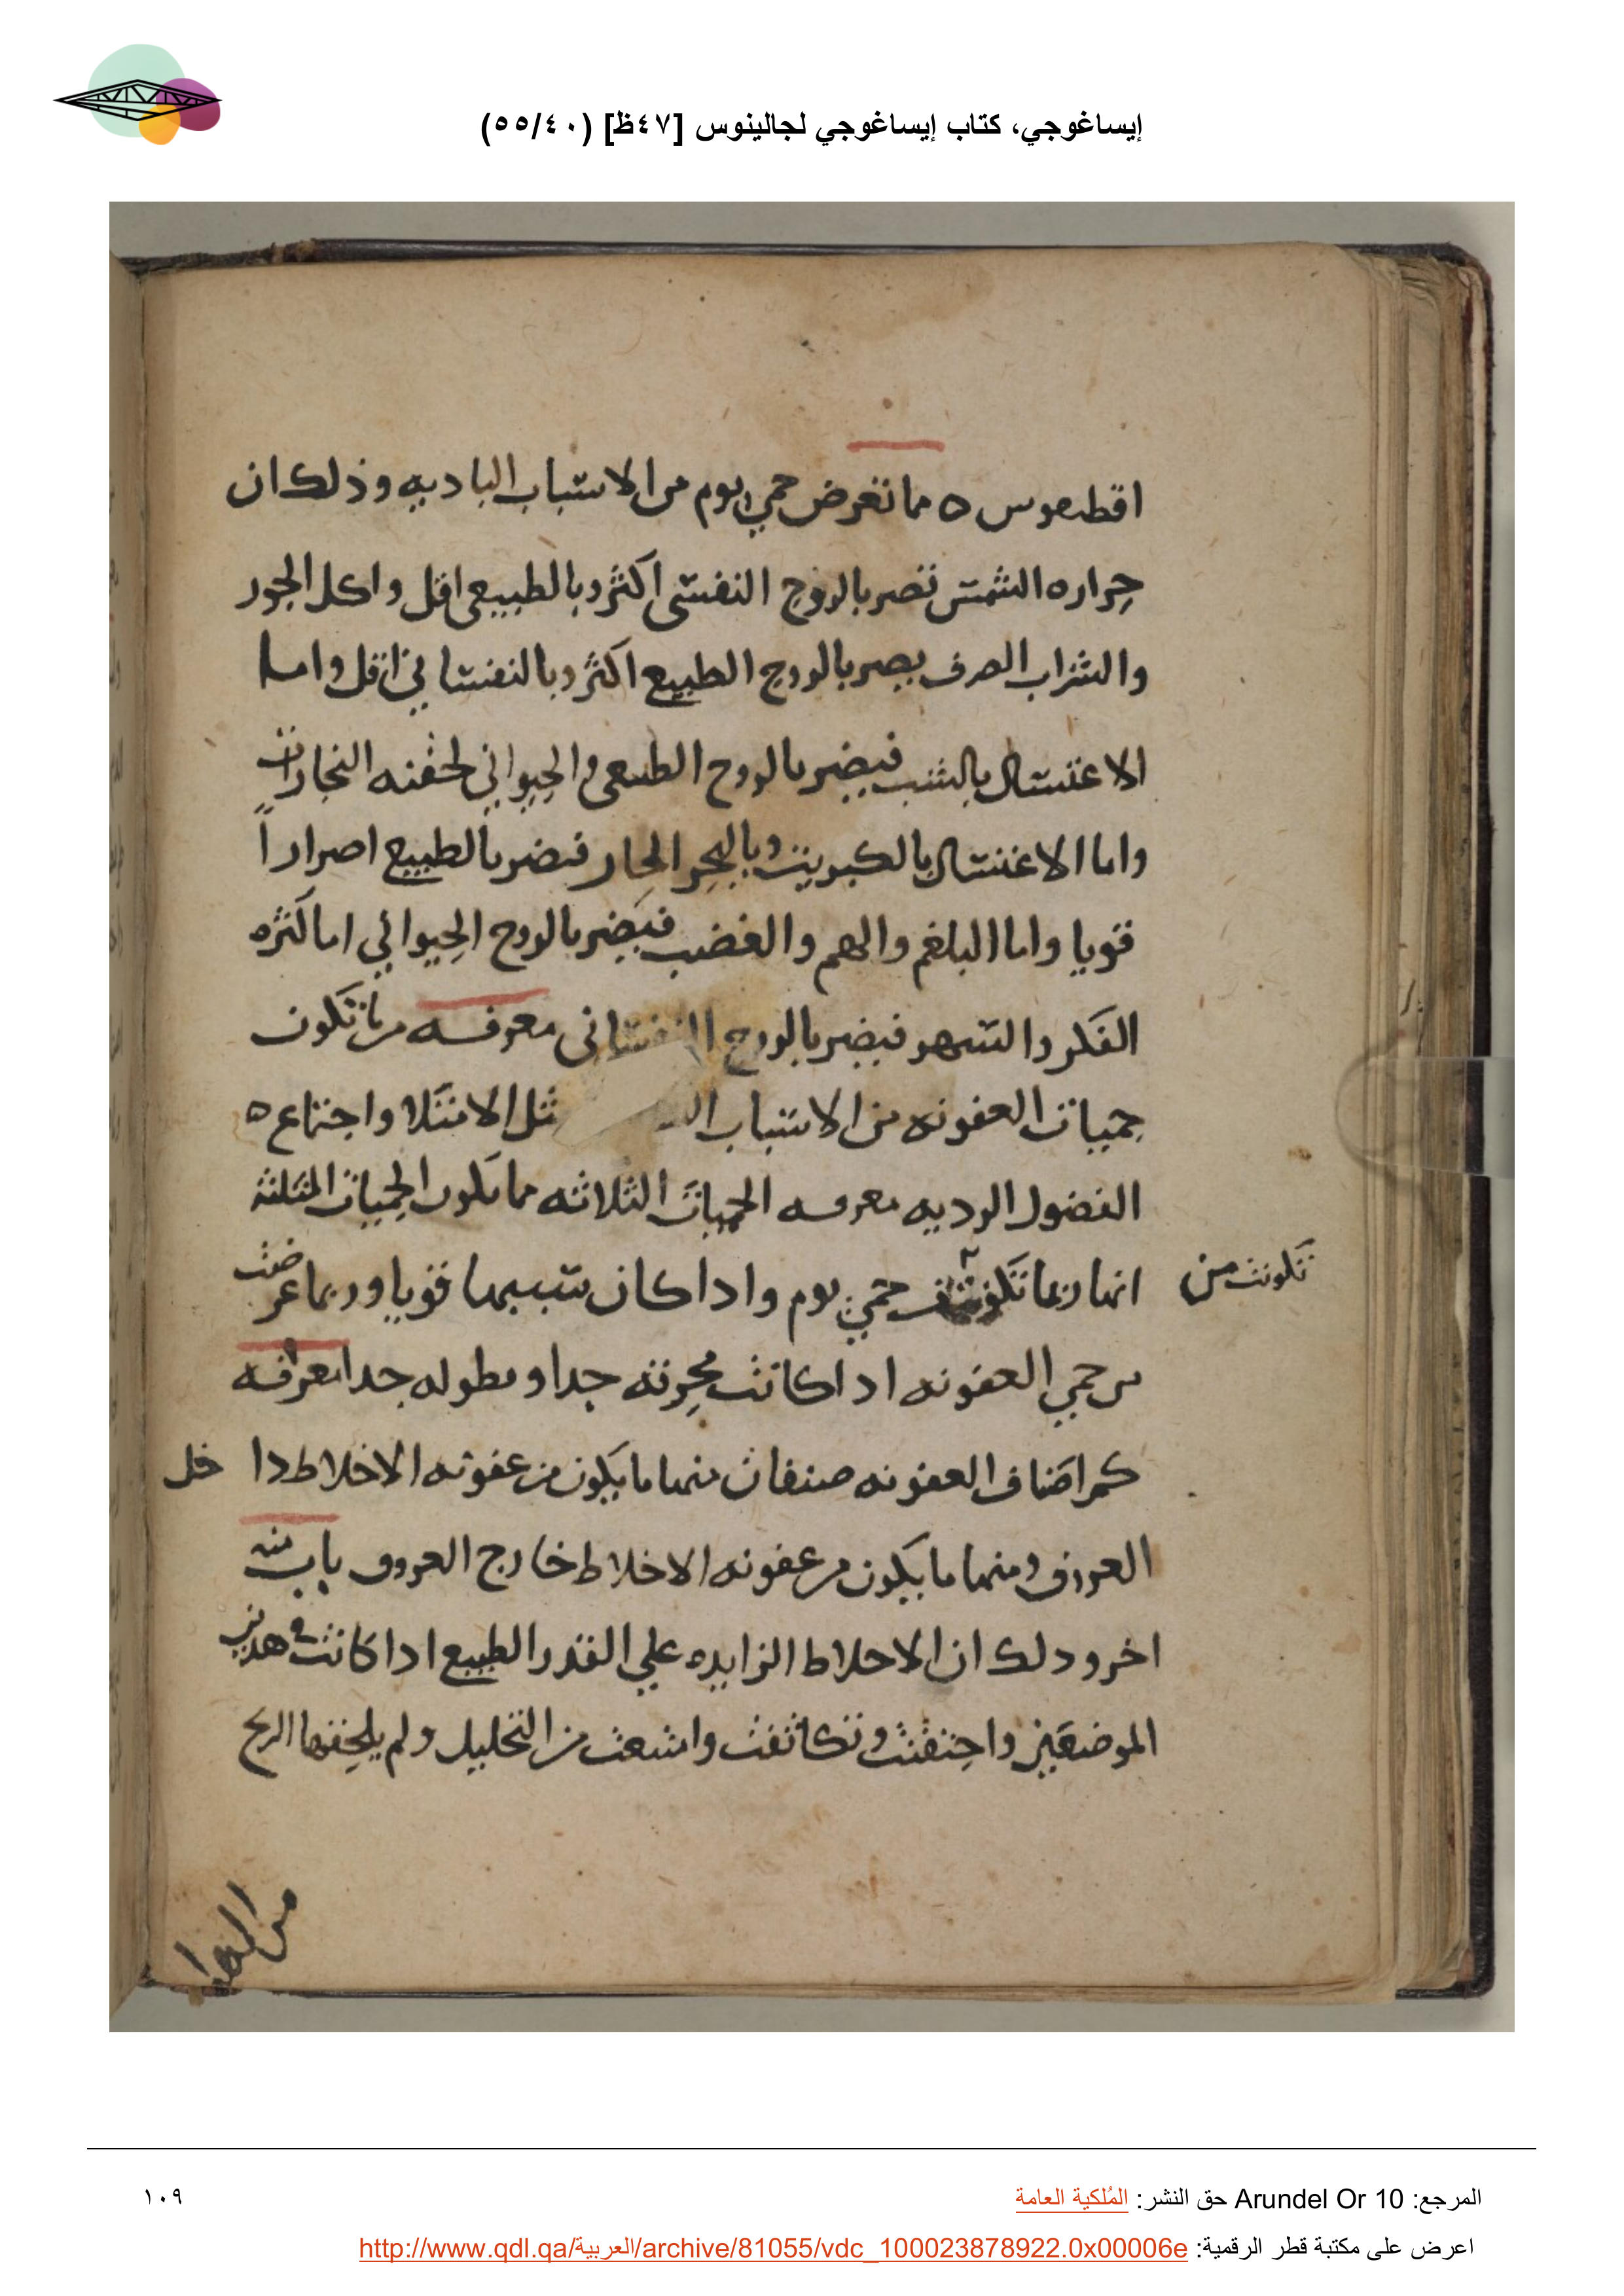 إيساغوجي، كتاب إيساغوجي لجالينوس [٤٧ظ] (٥٥/٤٠)
اقطيموس ٥ مما تعرض حمي يوم من الاسباب الباديه وذلك ان
حراره الشمس تضر بالروح النفسي اكثر وبالطبيعي اقل واكل الجور
والشراب الصرف يضر بالروح الطبيع اكثر وبالنفساني اقل واما
الاغتسال بالشب فيضر بالروح الطبيعي والحيواني لحقنه البخارات
واما الاغتسال بالكبريت وبالبحر الحار فيضر بالطبيع اضراراً
قويا واما البلغم والهم والغضب فيضر بالروح الحيواني اما كثره
الفكر والسهر فيضر بالروح النفساني معرفه مما تتكون
حميات العفونه من الاسباب مثل الامتلا واجتماع ٥
الفضول الرديه معرفه الحميات الثلاثه مما تكون الحميات المثلثه
انها ربما تكونت حمي يوم واذا كان سببها قويا وربما عرضت
تكونت من
من حمي العفونه اذا كانت محرقه جدا ومطوله جدا معرفه
كم اصناف العفونه صنفان منها ما يكون من عفونه الاخلاط داخل
العروق ومنها ما يكون من عفونه الاخلاط خارج العروق باب منه
اخر وذلك ان الاخلاط الزايده علي القدر الطبيع اذا كانت في هدين
الموضعين واحتقنت وتكاثفت وامتنعت من التحليل ولم يلحقها الريح
من الهوا
المرجع: Arundel Or 10 حق النشر: المُلكية العامة
١٠٩
اعرض على مكتبة قطر الرقمية: http://www.qdl.qa/العربية/archive/81055/vdc_100023878922.0x00006e